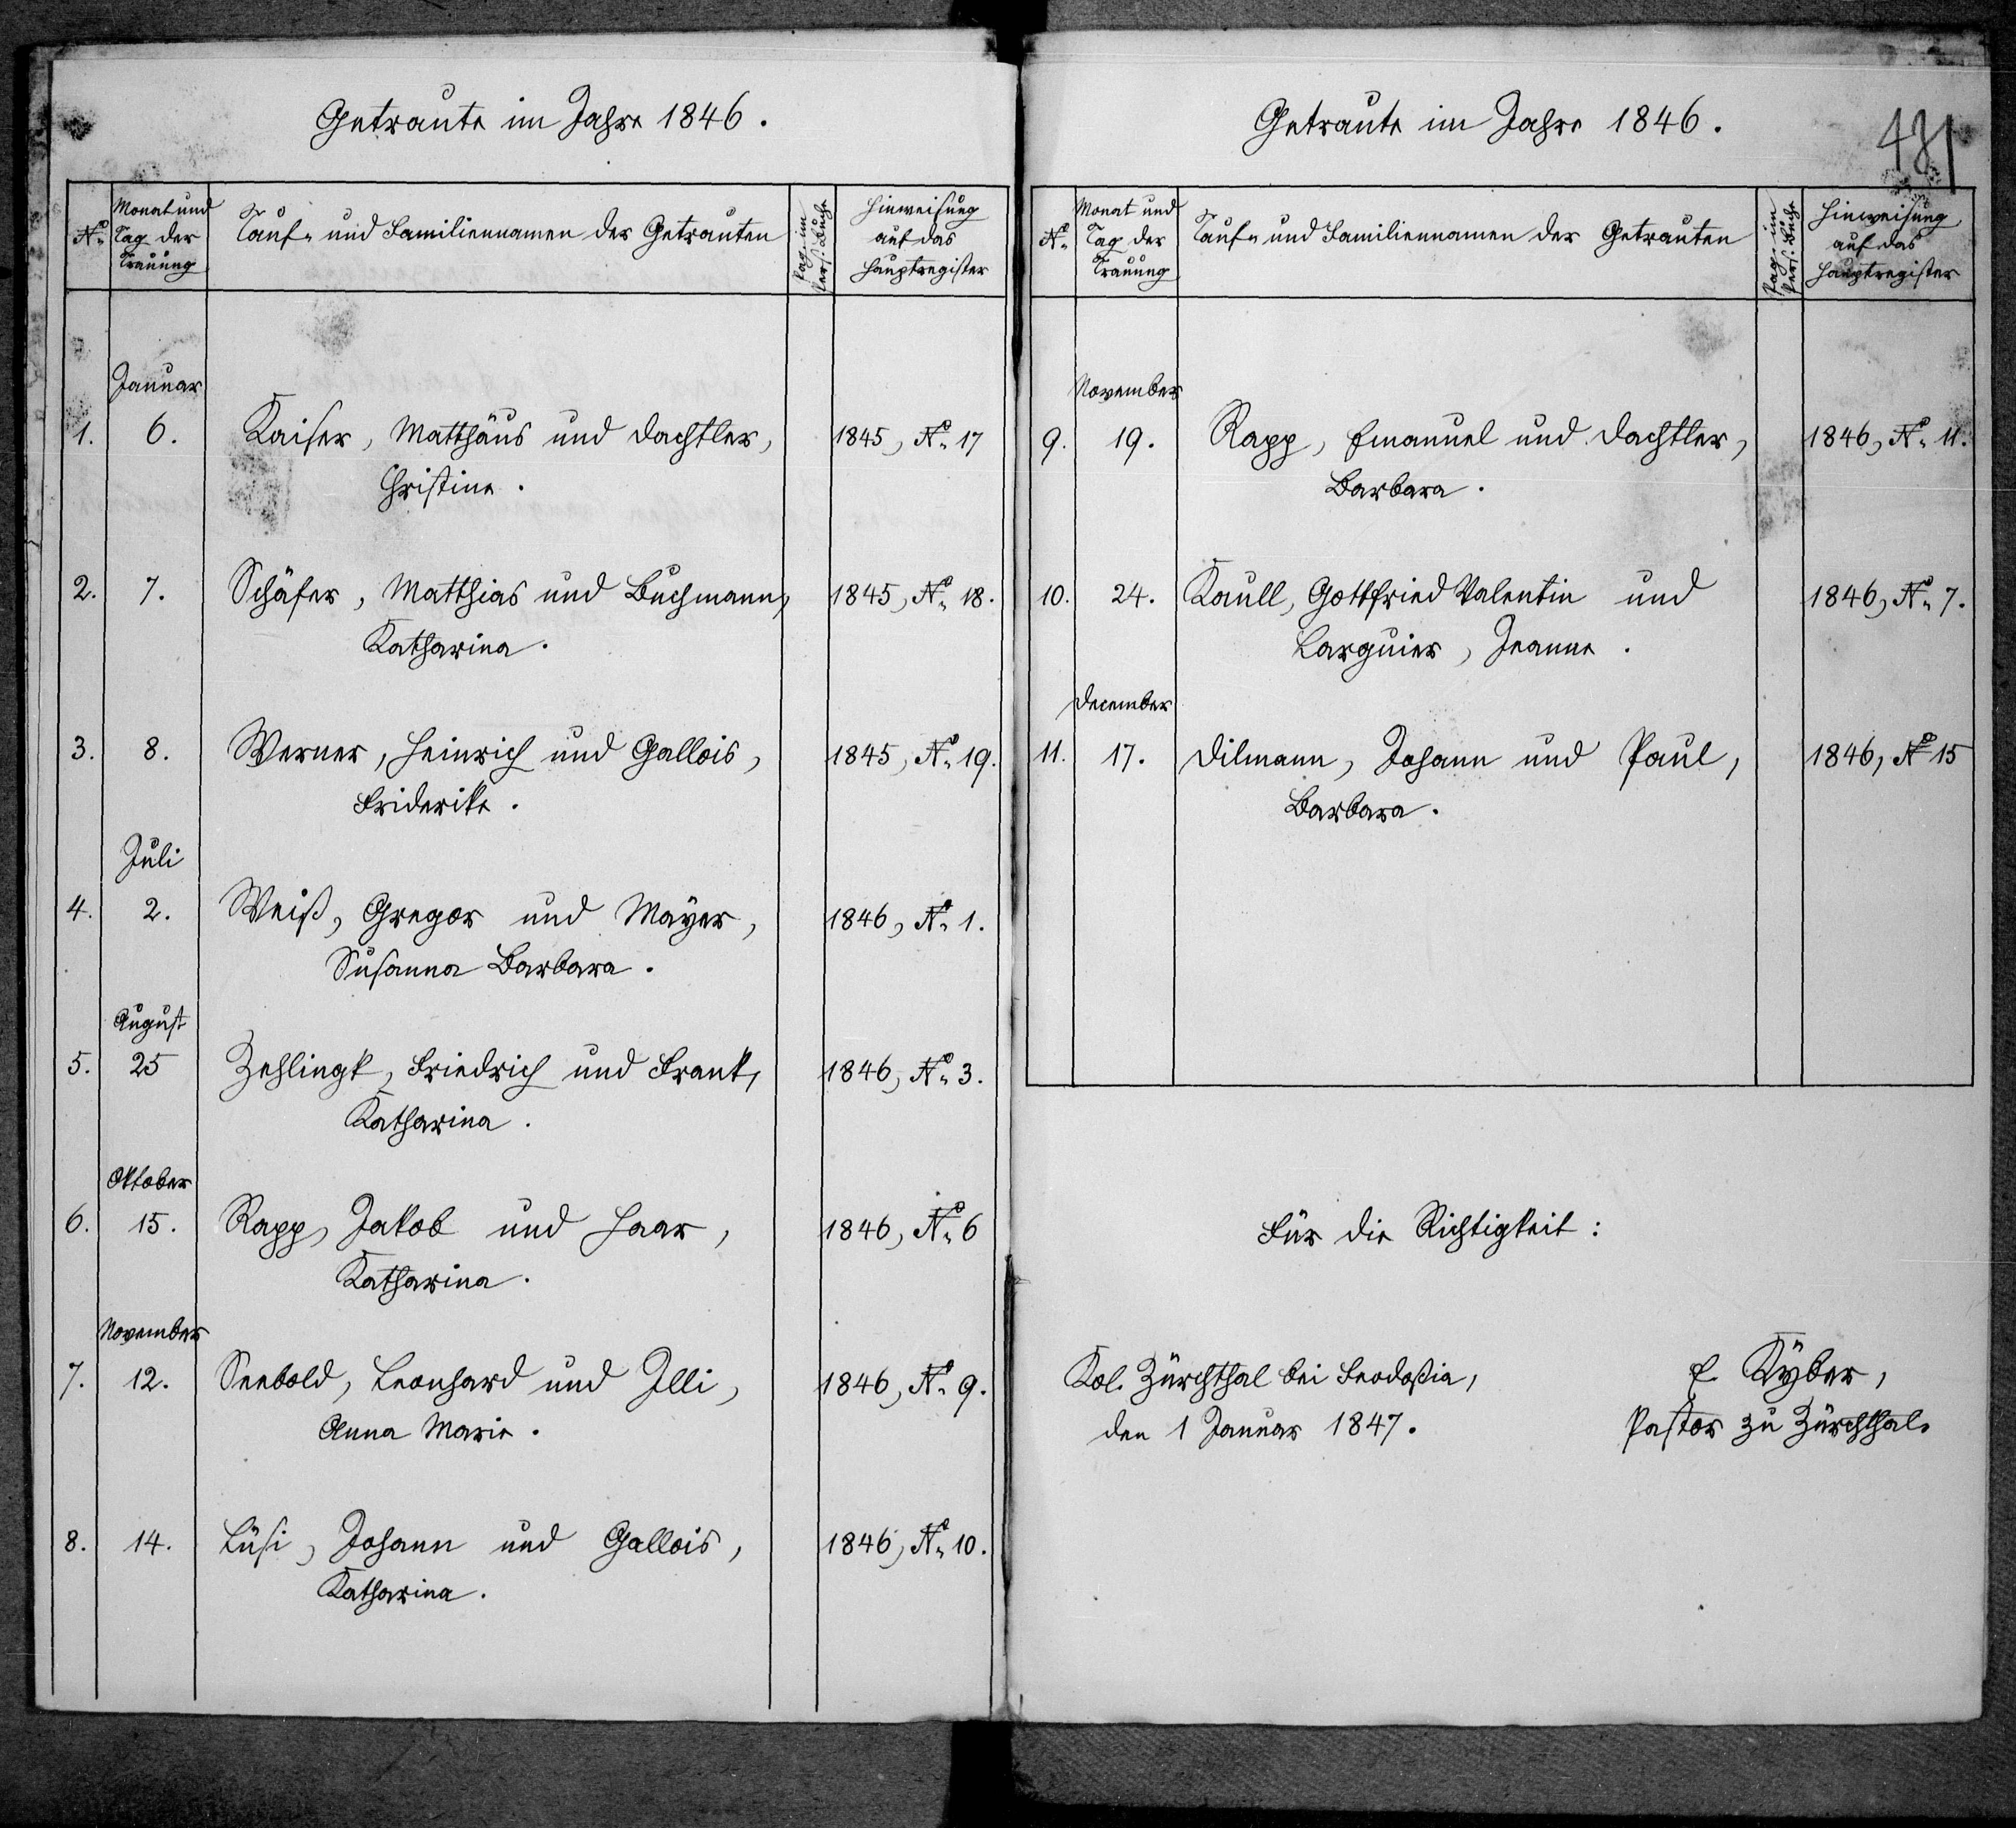 Getraute im Jahre 1846.
No.
Monat und
Tag der
Trauung
Tauf- und Familiennamen der Getrauten
Pag. im
Pers. Buche
Hinweisung
auf das
Hauptregister
Januar
1. 6. Kaiser, Matthäus und Dachtler, 1845, No. 17
Christine.
2. 7. Schäfer, Matthias und Buchmann, 1845, No. 18.
Katharina.
3. 8. Werner, Heinrich und Gallois, 1845, No. 19.
Friderike.
Juli
4. 2. Weiß, Gregor und Mayer, 1846, No. 1.
Susanna Barbara.
August
5. 25 Zehlingk, Friedrich und Frank, 1846, No. 3.
Katharina.
Oktober
6. 15. Rapp, Jakob und Haar, 1846, No. 6
Katharina.
November
7. 12. Seebold, Leonhard und Illi, 1846, No. 9.
Anna Marie.
8. 14. Lüsi, Johann und Gallois, 1846, No. 10.
Katharina.
Getraute im Jahre 1846.
481
No.
Monat und
Tag der
Trauung
Tauf- und Familiennamen der Getrauten
Pag. im
Pers. Buche
Hinweisung
auf das
Hauptregister
November
9. 19. Rapp, Emanuel und Dachtler, 1846, No. 11.
Barbara.
10. 24. Kaull, Gottfried Valentin und 1846, No. 7.
Larguier, Jeanne.
December
11. 17. Dilmann, Johann und Paul, 1846, No 15
Barbara.
Für die Richtigkeit:
Kol. Zürchthal bei Feodosia,
den 1 Januar 1847.
E. Kyber,
Pastor zu Zürchthal.